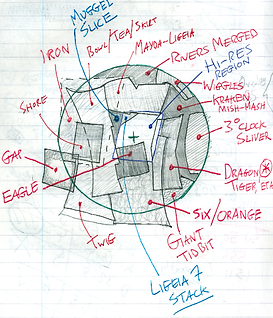 MUGGEL
SLICE
IRON
BOWL/KEA/SKIRT
MAYDA-LIGEIA
RIVERS MERGED
HI-RES
REGION
WIGGLES
KRAKEN
MISH-MASH
SHORE
3 O'CLOCK
SLIVER
GAP
EAGLE
DRAGON
TIGER, ETA
SIX/ORANGE
GIANT
TIDBIT
TWIG
LIGEIA 7
STACK